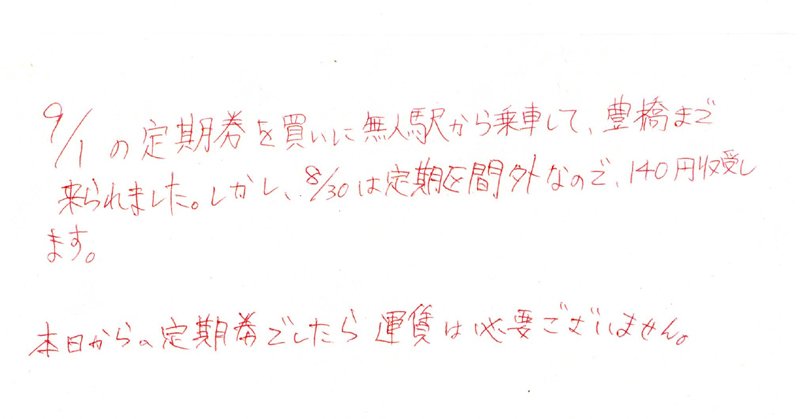 9/1の定期券を買いに無人駅から乗車して、豊橋まで
来られました。しかし、8/30は定期区間外なので、140円収受し
ます。
本日からの定期券でしたら運賃は必要ございません。